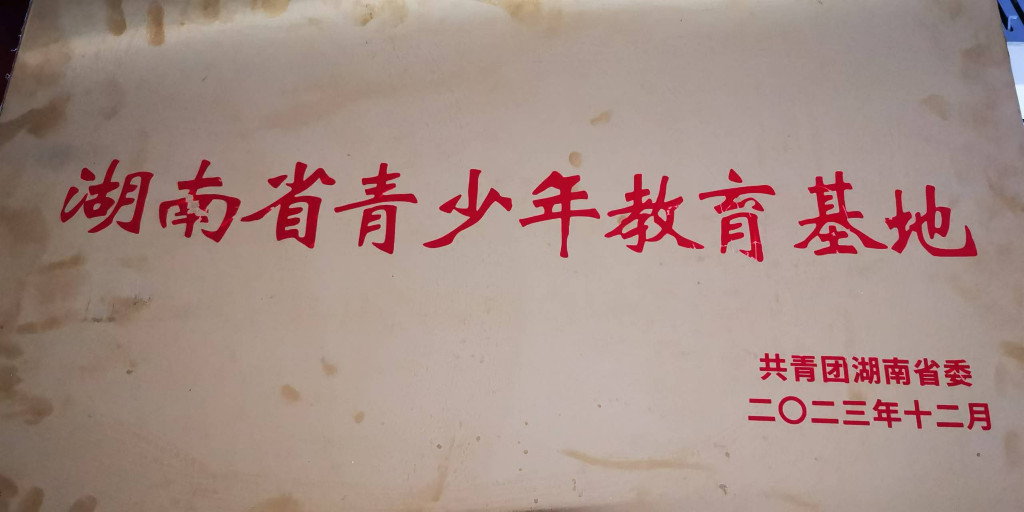 湖南省青少年教育基地
共青团湖南省委
二〇二三年十二月